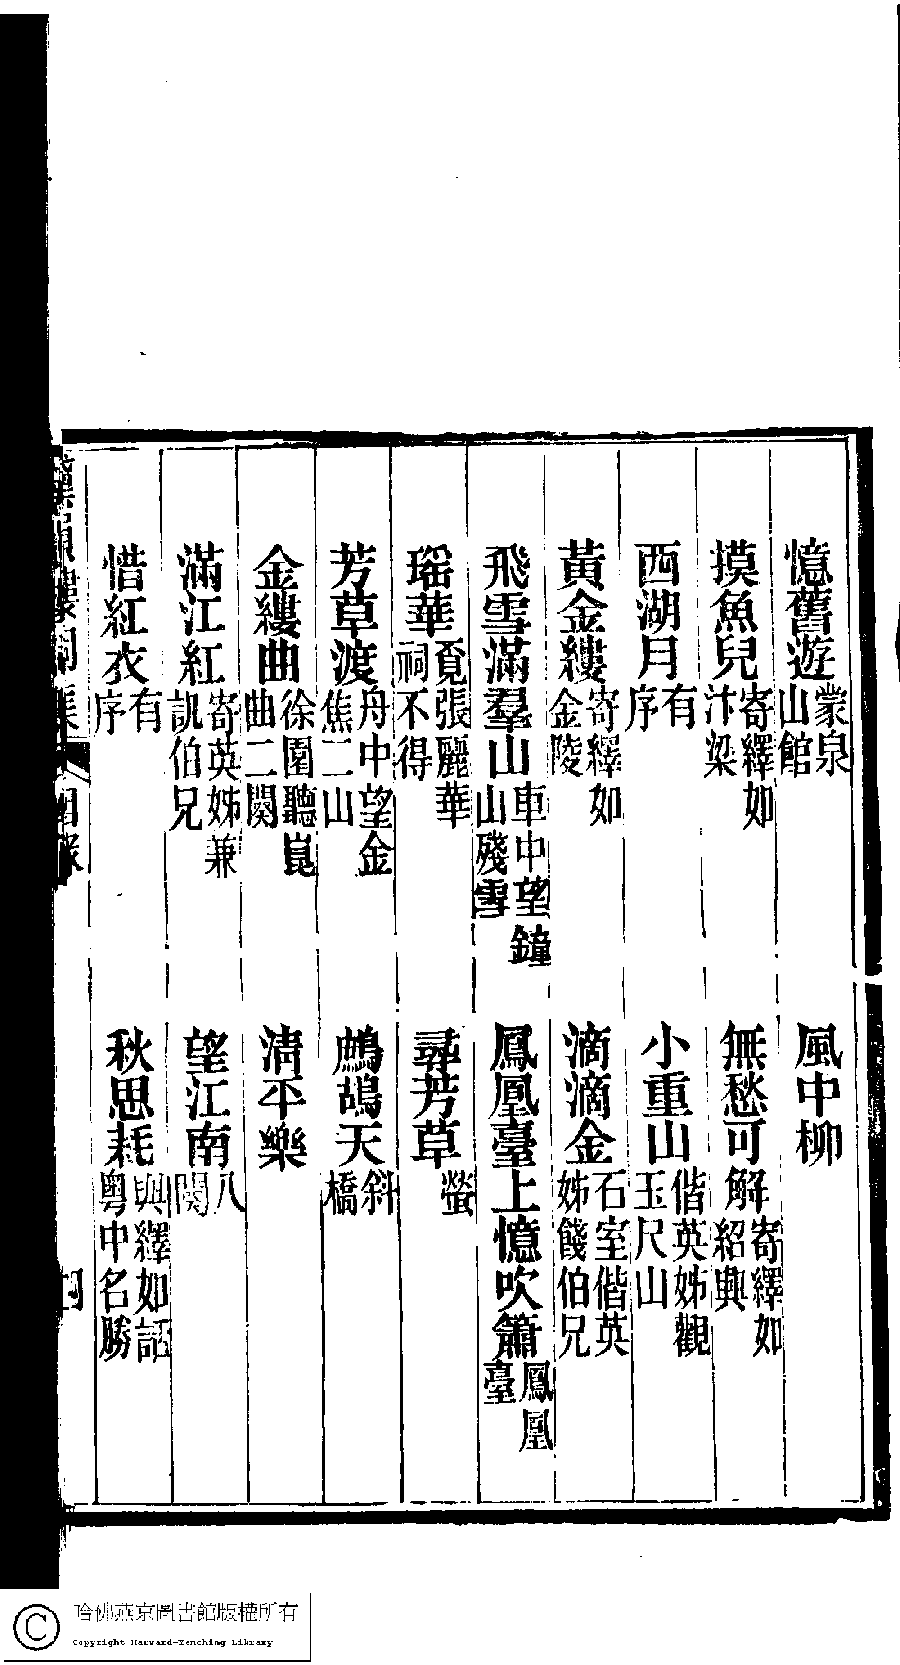 憶舊遊 蒙泉山館 風中柳
摸魚兒 寄繹如汴梁 無愁可解 寄繹如紹興
西湖月 有序 小重山 偕英姊觀玉尺山
黃金縷 寄繹如金陵 滴滴金 石室偕英姊餞伯兄
飛雪滿羣山 車中望鐘山殘雪 鳳凰臺上憶吹簫 鳳凰臺
瑶華 覓張麗華祠不得 尋芳草 螢
芳草渡 舟中望金焦二山 鷓鴣天 斜橋
金縷曲 徐園聽崑曲二闋 淸平樂
滿江紅 寄英姊兼訊伯兄 望江南 八闋
惜紅衣 有序 秋思耗 與繹如話粤中名勝
詞集 目錄 四
哈佛燕京圖書館版權所有
Copyright Harvard-Yenching Library